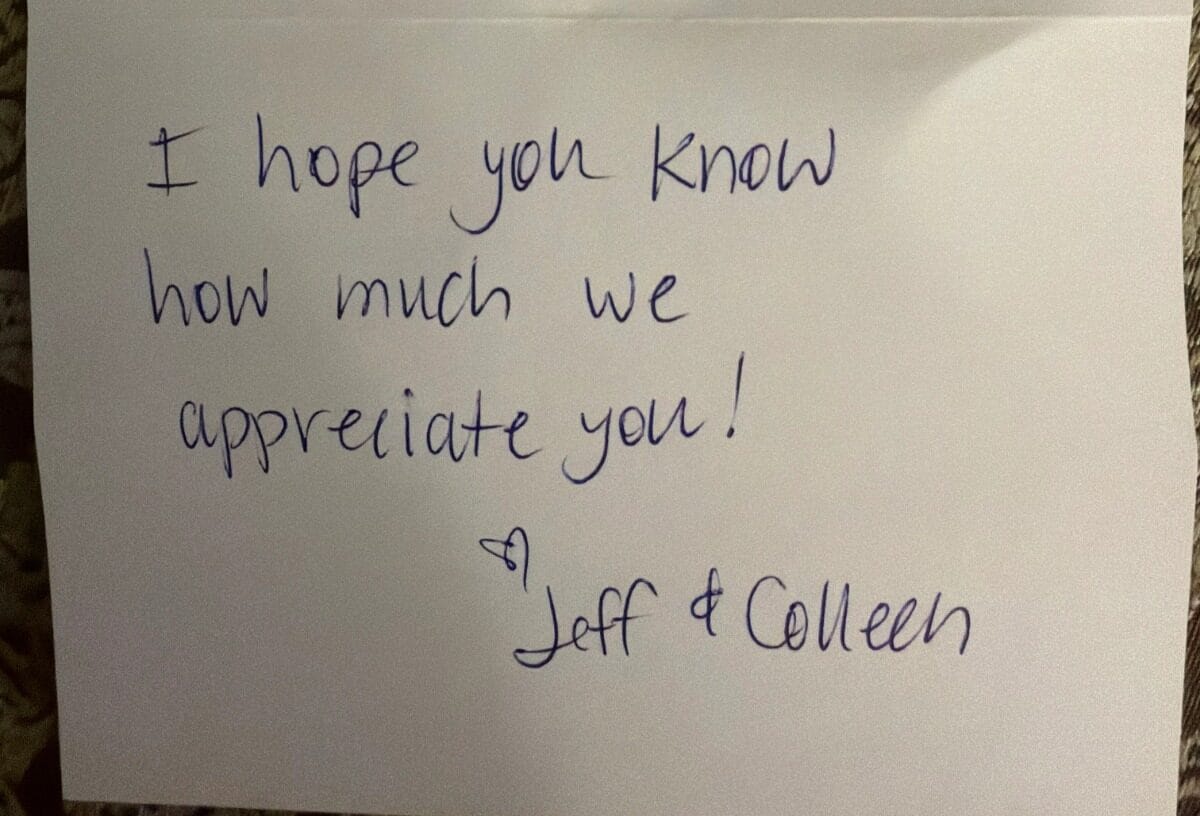 I hope you know
how much we
appreciate you!
Jeff & Colleen